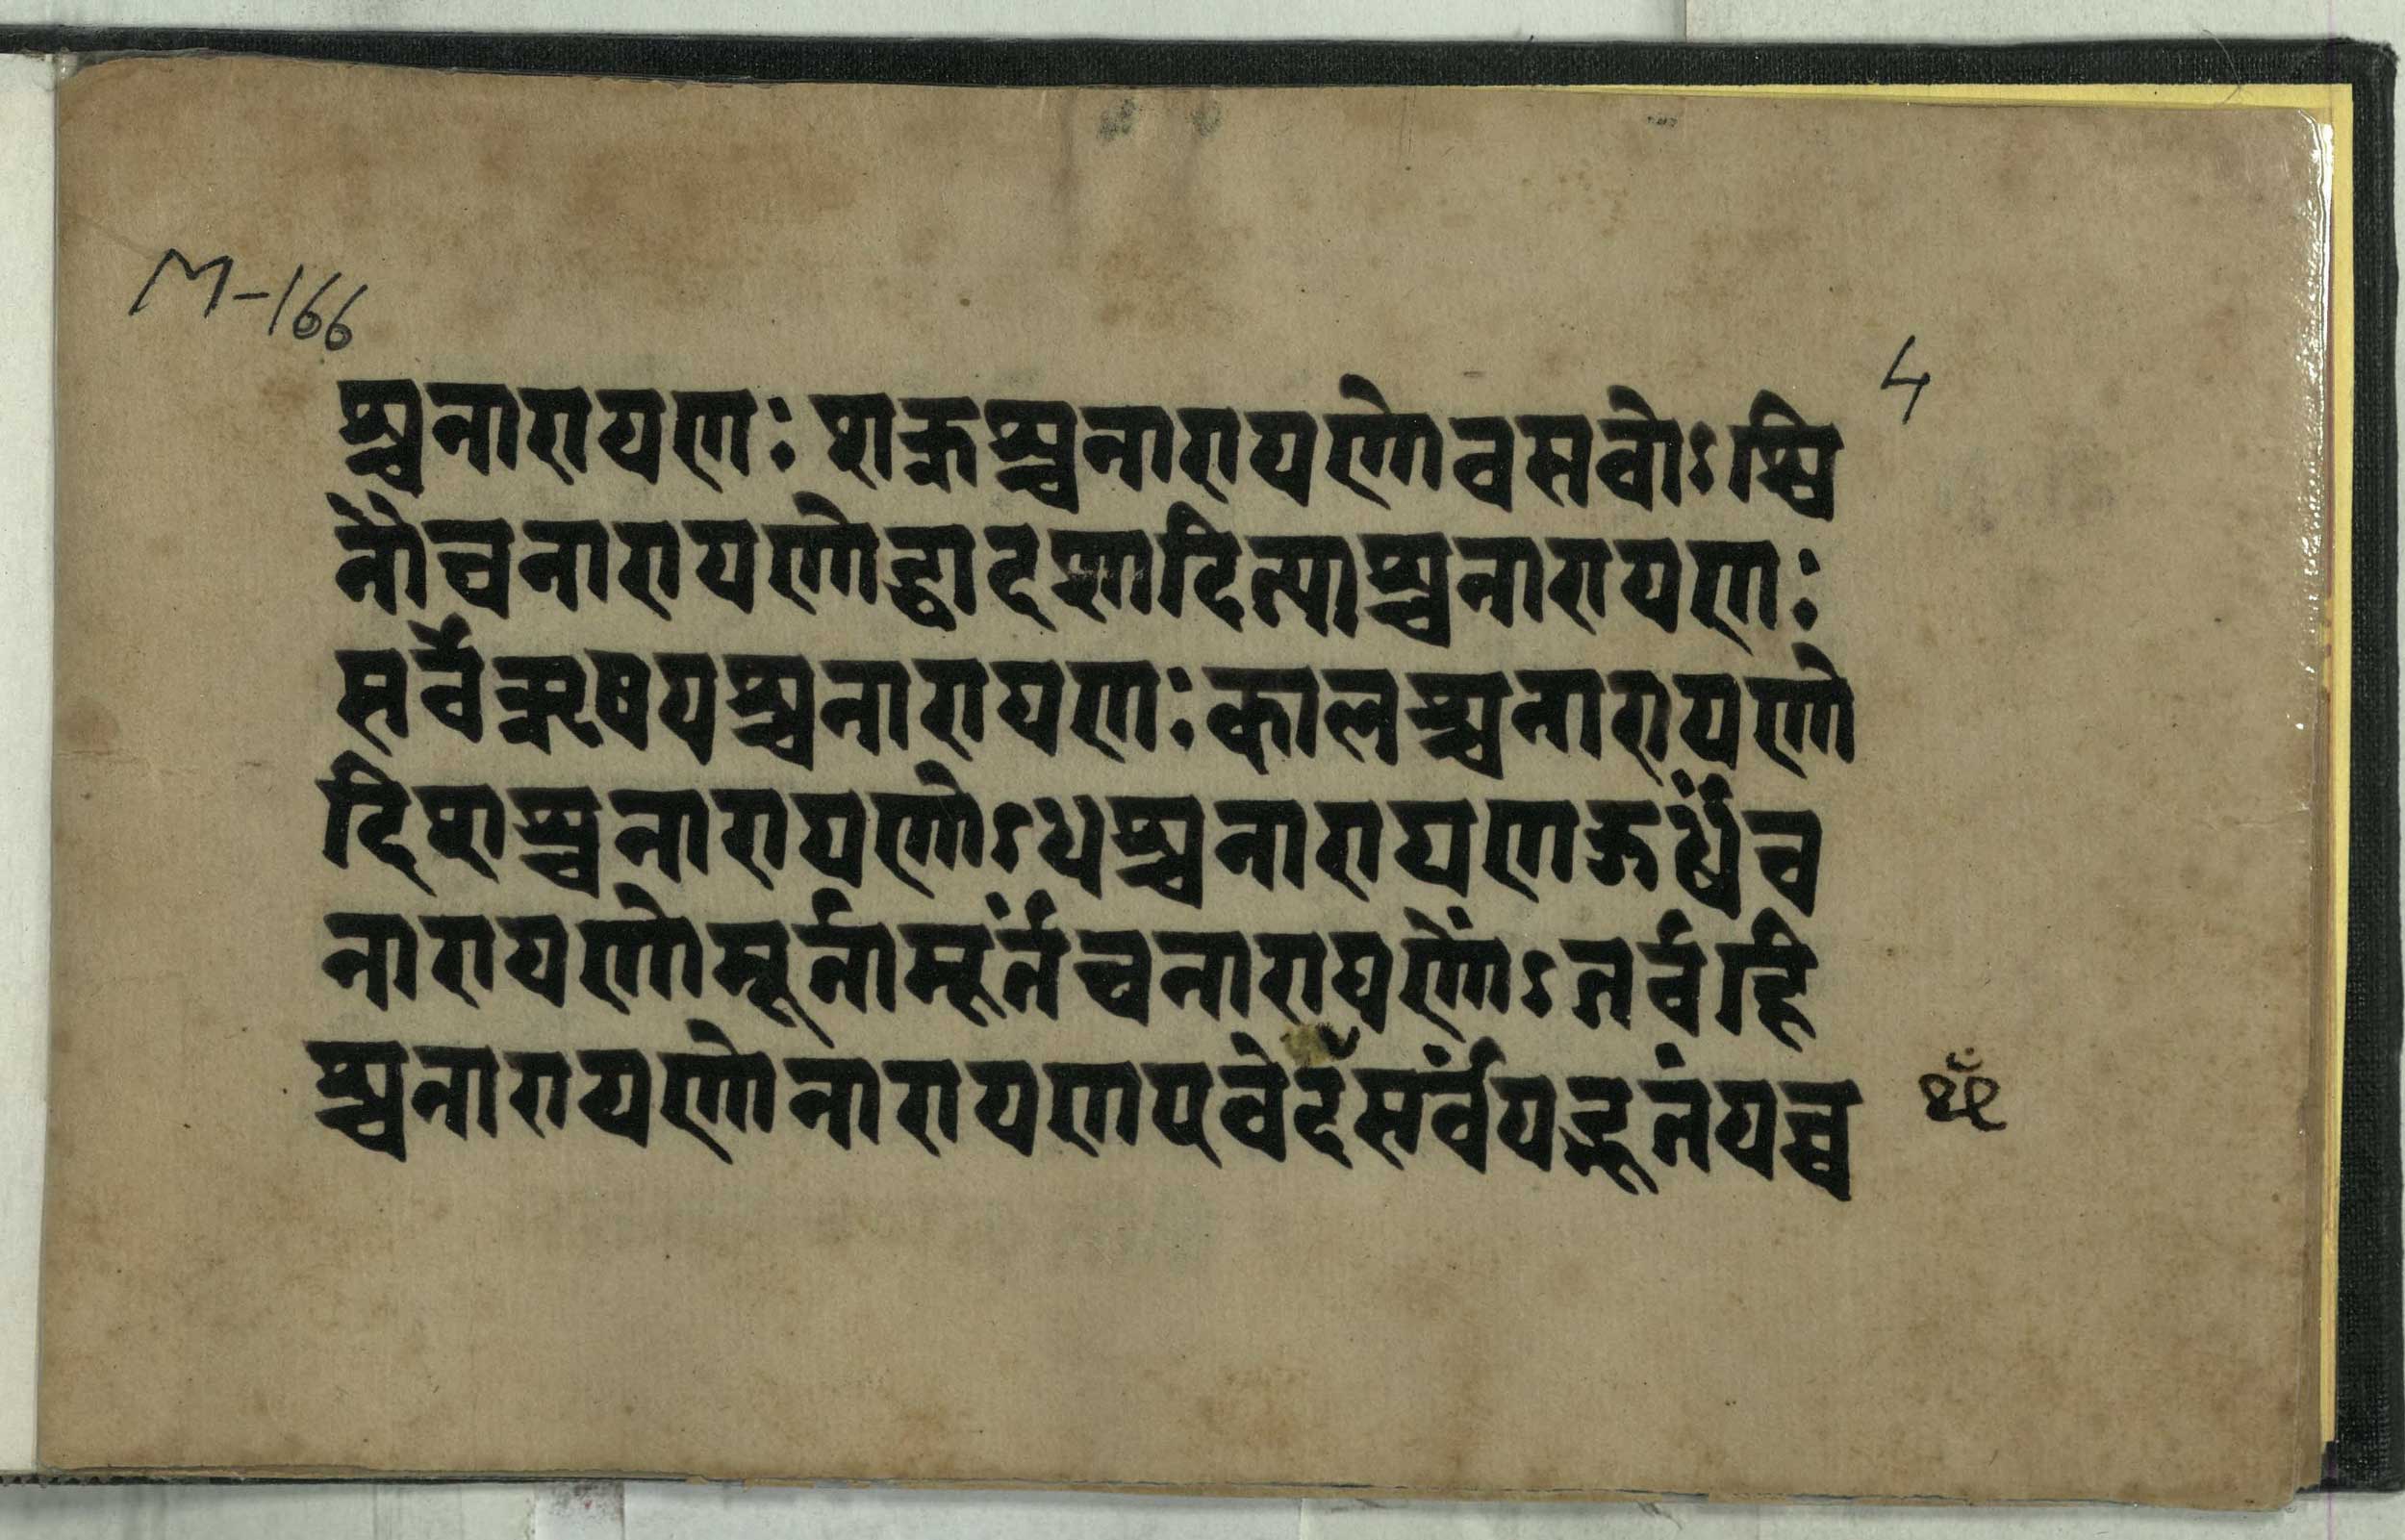 M-166
4
श्चनारायणः शक्रश्चनारायणोवसवोऽश्वि
नौचनारायणोद्वादशादित्याश्चनारायणः
सर्वेऋषयश्चनारायणःकालश्चनारायणो
दिशश्चनारायणोऽधश्चनारायणऊर्ध्वंच
नारायणोमूर्तामूर्तंचनारायणोंऽतर्बहि
श्चनारायणोनारायणएवेदँसर्वंयद्भूतंयच्च